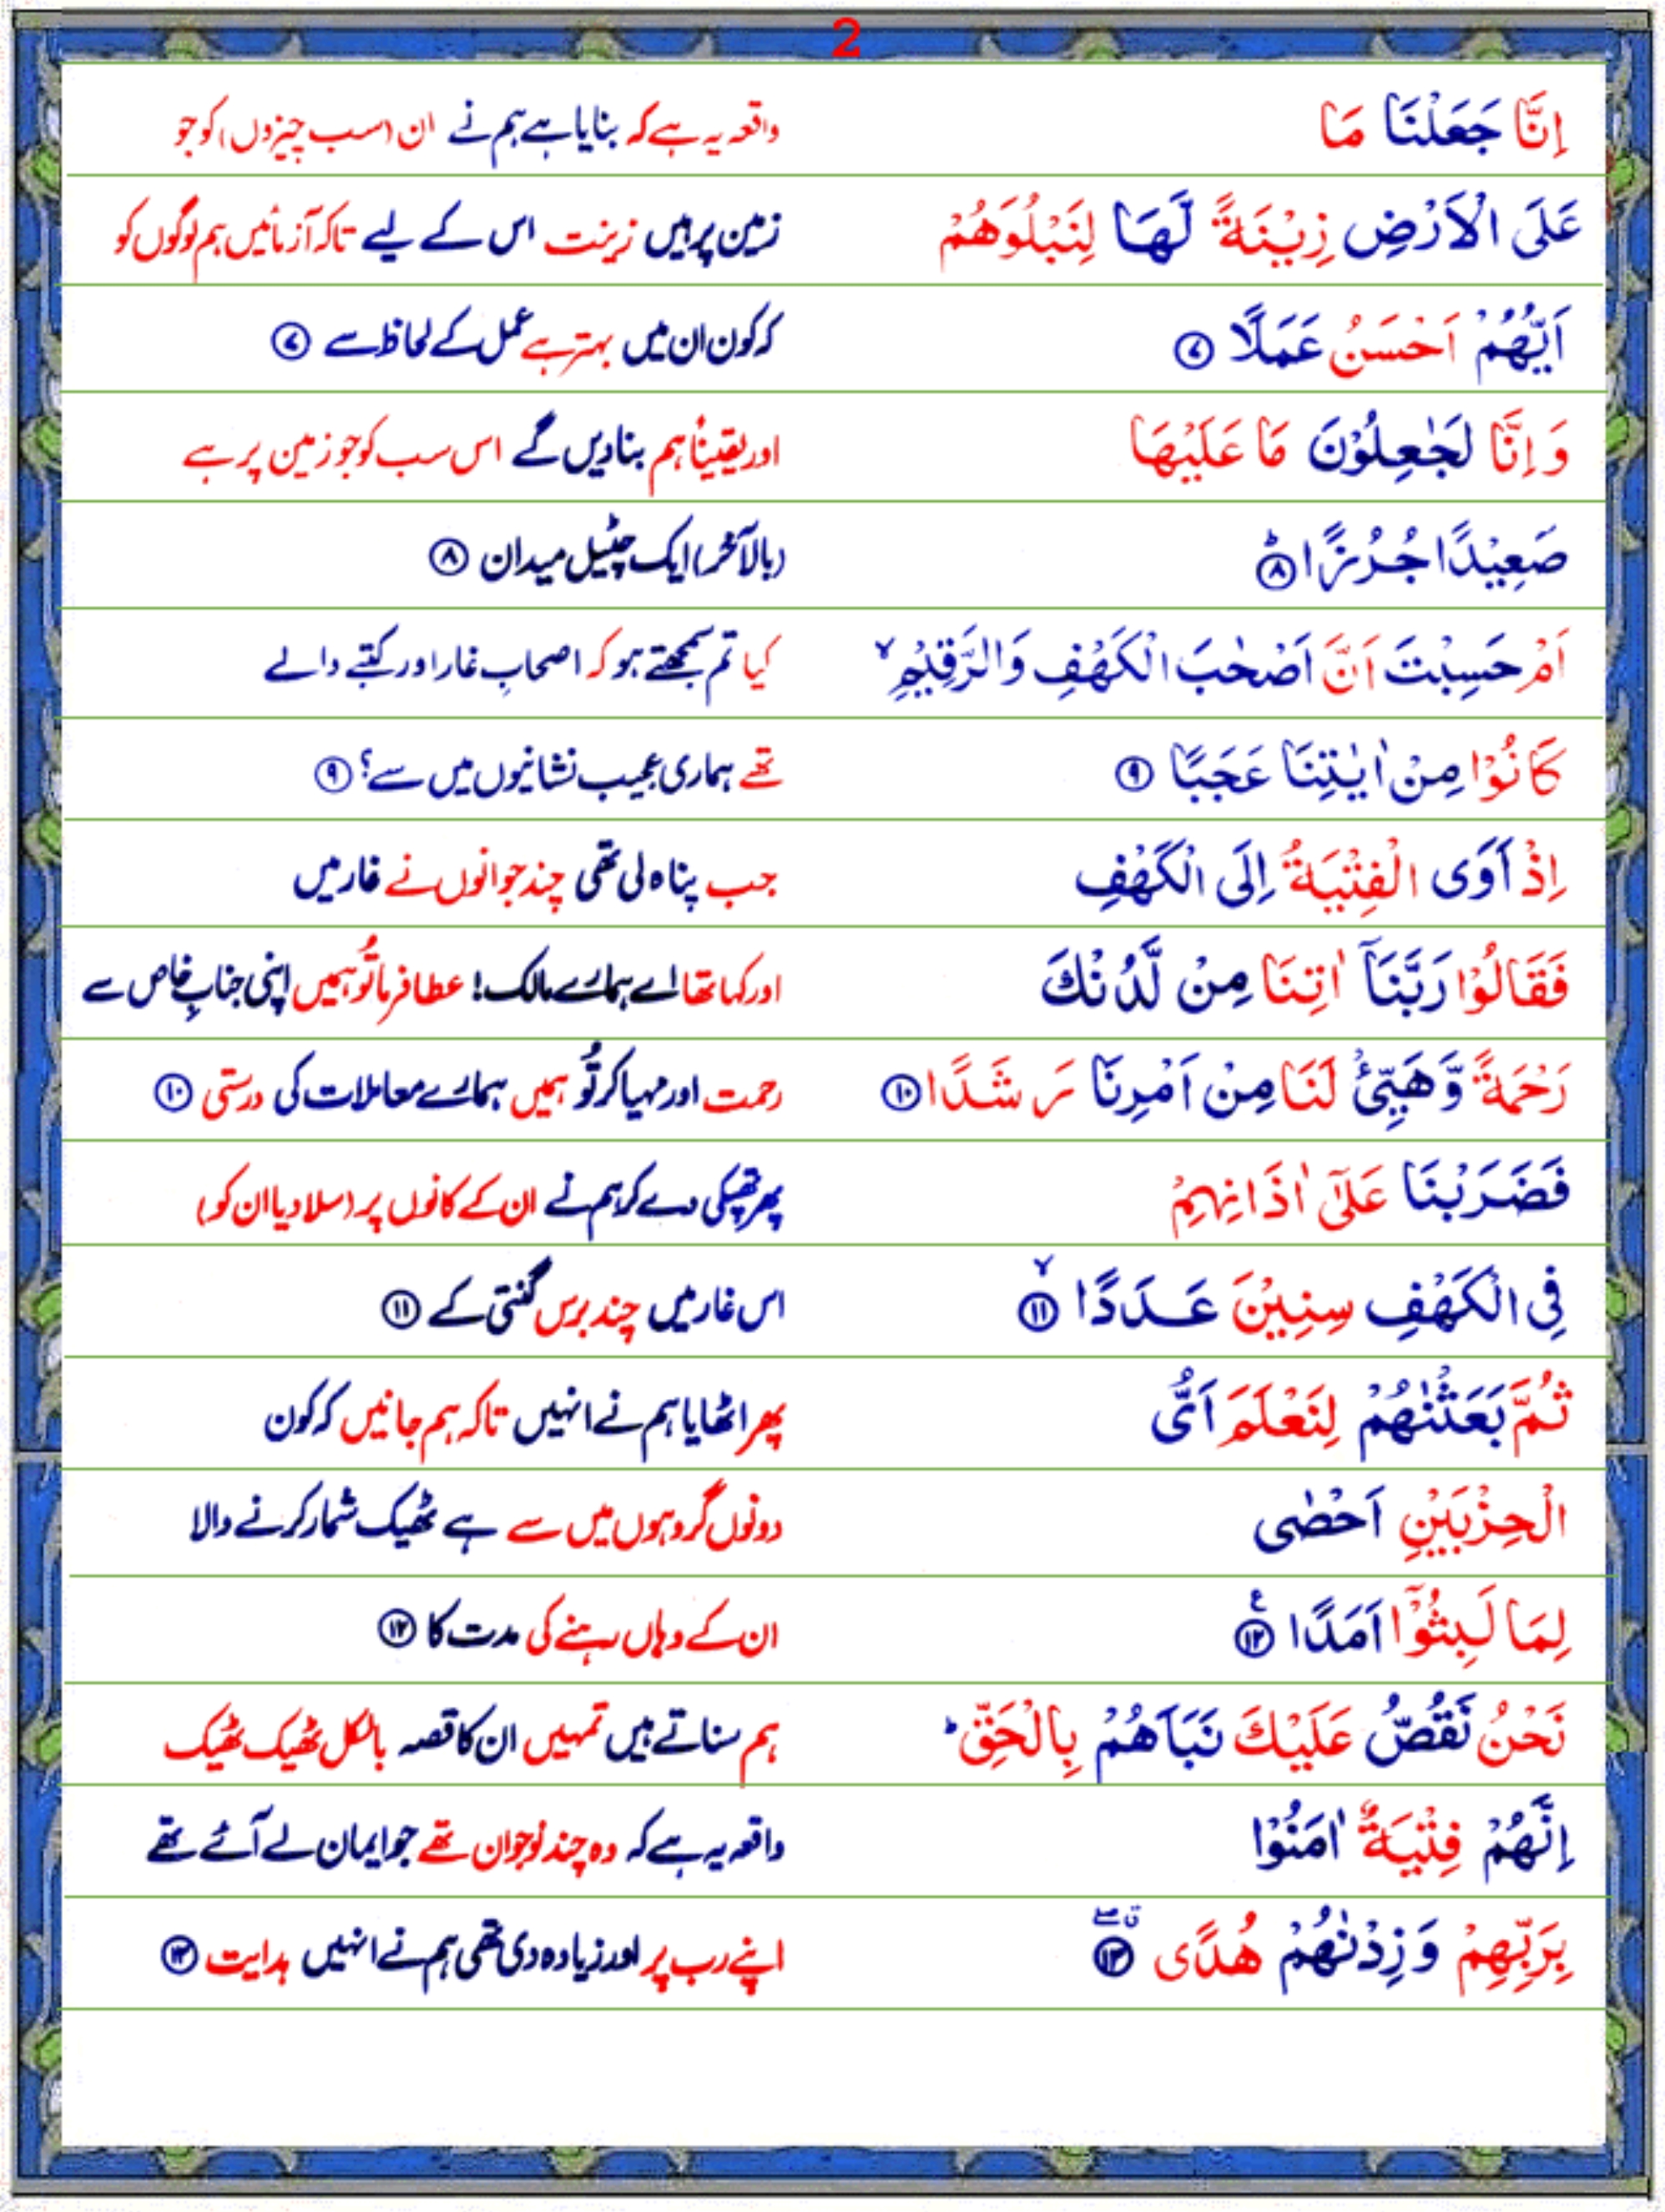 2
اِنَّا جَعَلْنَا مَا واقعہ یہ ہے کہ بنایا ہے ہم نے ان (سب چیزوں) کو جو
عَلَى الْاَرْضِ زِيْنَةً لَّهَا لِنَبْلُوَهُمْ زمین پر ہیں زینت اس کے لیے تاکہ آزمائیں ہم لوگوں کو
اَيُّهُمْ اَحْسَنُ عَمَلًا ۷ کہ کون ان میں بہتر ہے عمل کے لحاظ سے ۷
وَ اِنَّا لَجٰعِلُوْنَ مَا عَلَيْهَا اور یقیناً ہم بنا دیں گے اس سب کو جو زمین پر ہے
صَعِيْدًا جُرُزًا ۸ؕ (بالآخر) ایک چٹیل میدان ۸
اَمْ حَسِبْتَ اَنَّ اَصْحٰبَ الْكَهْفِ وَالرَّقِيْمِ ۙ کیا تم سمجھتے ہو کہ اصحابِ غار اور کتبے والے
كَانُوْا مِنْ اٰيٰتِنَا عَجَبًا ۹ تھے ہماری عجیب نشانیوں میں سے؟ ۹
اِذْ اَوَى الْفِتْيَةُ اِلَى الْكَهْفِ جب پناہ لی تھی چند جوانوں نے غار میں
فَقَالُوْا رَبَّنَآ اٰتِنَا مِنْ لَّدُنْكَ اور کہا تھا اے ہمارے مالک! عطا فرما تُو ہمیں اپنی جنابِ خاص سے
رَحْمَةً وَّهَيِّئْ لَنَا مِنْ اَمْرِنَا رَشَدًا ۱۰ رحمت اور مہیا کر تُو ہمیں ہمارے معاملات کی درستی ۱۰
فَضَرَبْنَا عَلٰٓى اٰذَانِهِمْ پھر تھپکی دے کر ہم نے ان کے کانوں پر (سلا دیا ان کو)
فِى الْكَهْفِ سِنِيْنَ عَدَدًا ۱۱ۙ اس غار میں چند برس گنتی کے ۱۱
ثُمَّ بَعَثْنٰهُمْ لِنَعْلَمَ اَىُّ پھر اٹھایا ہم نے انہیں تاکہ ہم جانیں کہ کون
الْحِزْبَيْنِ اَحْصٰى دونوں گروہوں میں سے ہے ٹھیک شمار کرنے والا
لِمَا لَبِثُوْٓا اَمَدًا ۱۲ع ان کے وہاں رہنے کی مدت کا ۱۲
نَحْنُ نَقُصُّ عَلَيْكَ نَبَاَهُمْ بِالْحَقِّ ؕ ہم سناتے ہیں تمہیں ان کا قصہ بالکل ٹھیک ٹھیک
اِنَّهُمْ فِتْيَةٌ اٰمَنُوْا واقعہ یہ ہے کہ وہ چند نوجوان تھے جو ایمان لے آئے تھے
بِرَبِّهِمْ وَزِدْنٰهُمْ هُدًى ۱۳ۖق اپنے رب پر اور زیادہ دی تھی ہم نے انہیں ہدایت ۱۳